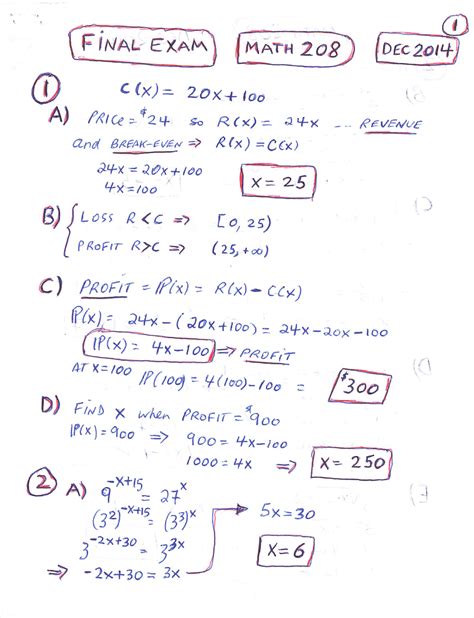 1
FINAL EXAM MATH 208 DEC 2014
1 C(x) = 20x+100
A) PRICE = $24 so R(x) = 24x ... REVENUE
and BREAK-EVEN ⇒ R(x) = C(x)
24x = 20x+100
4x=100 x = 25
B) { LOSS R<C ⇒ [0, 25)
PROFIT R>C ⇒ (25, +∞)
C) PROFIT = P(x) = R(x) - C(x)
P(x) = 24x - (20x+100) = 24x-20x-100
P(x) = 4x-100 ⇒ PROFIT
AT x=100 P(100) = 4(100)-100 = $300
D) FIND x when PROFIT = $900
P(x)=900 ⇒ 900 = 4x-100
1000 = 4x ⇒ x = 250
2 A) 9^{-x+15} = 27^{x}
(3^2)^{-x+15} = (3^3)^x
3^{-2x+30} = 3^{3x}
⇒ -2x+30 = 3x
5x=30
x=6